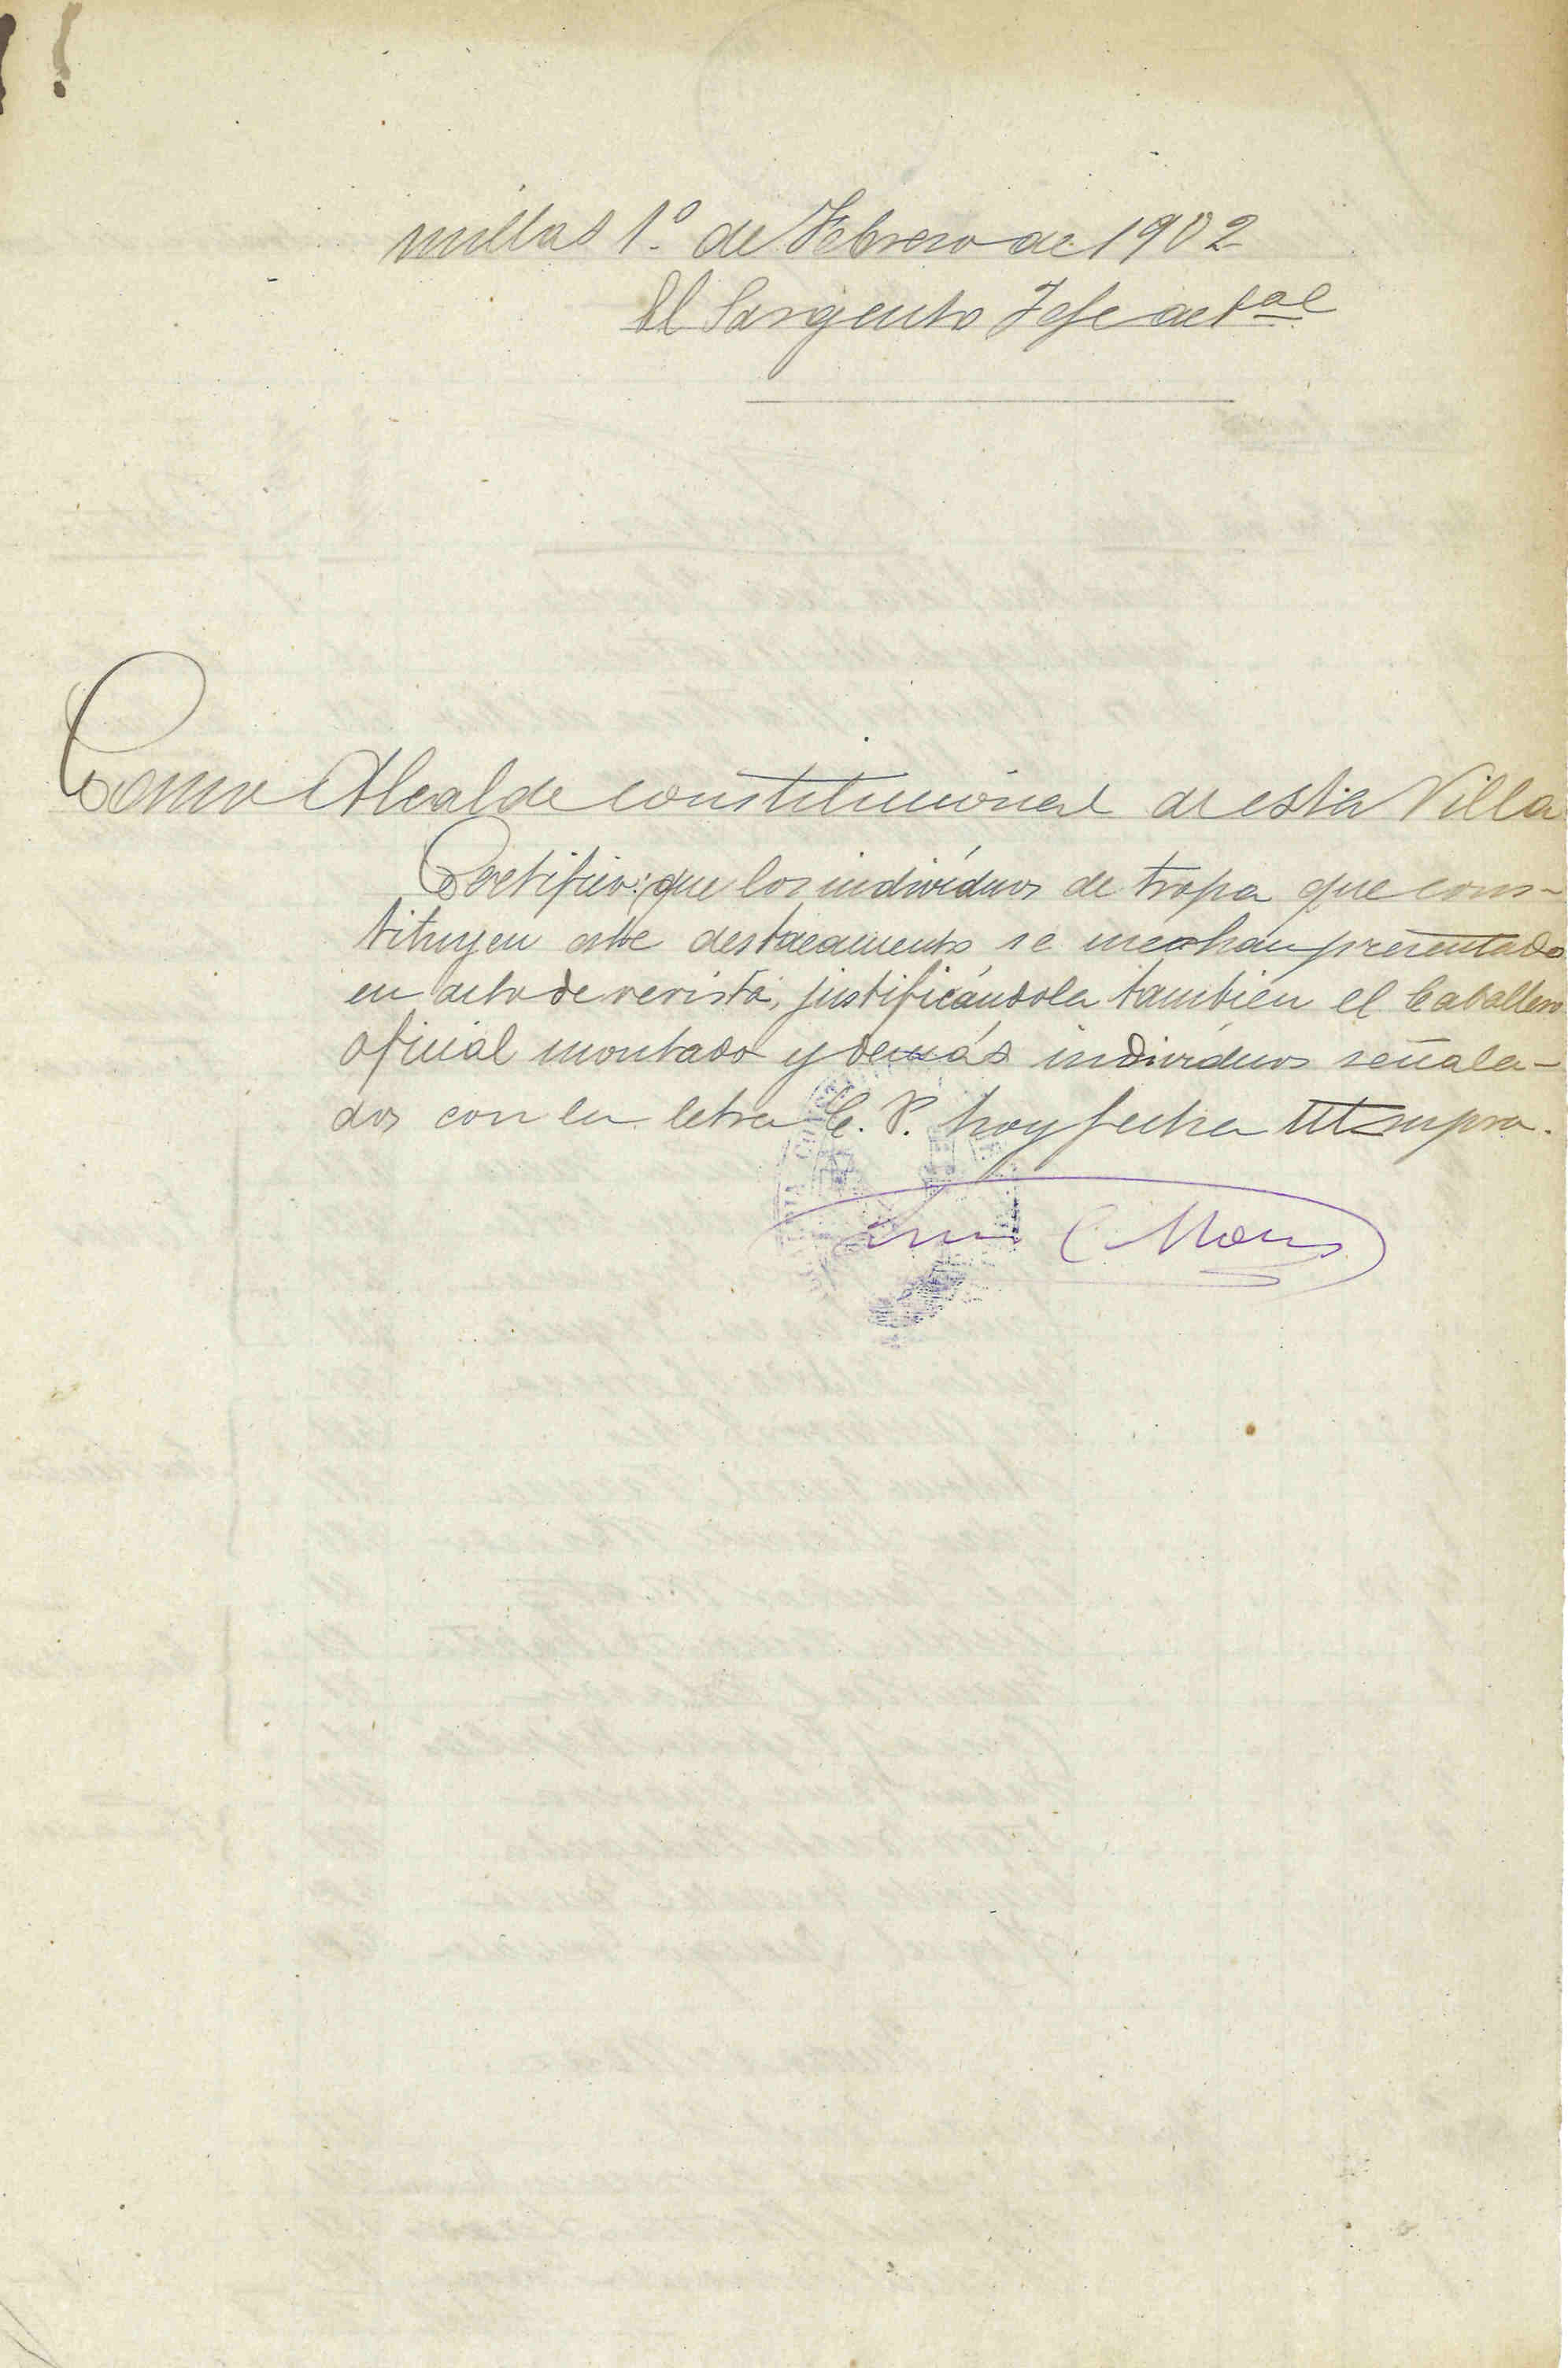 millas 1º de Febrero de 1902
El Sargento Jefe actal
Como Alcalde constitucional de esta Villa
Certifico: que los indivíduos de tropa que cons-
tituyen este destacamento se me han presentado
en acto de revista, justificándola también el Caballero
oficial montado y demás indivíduos señala-
dos con la letra C. P. hoy fecha ut supra.